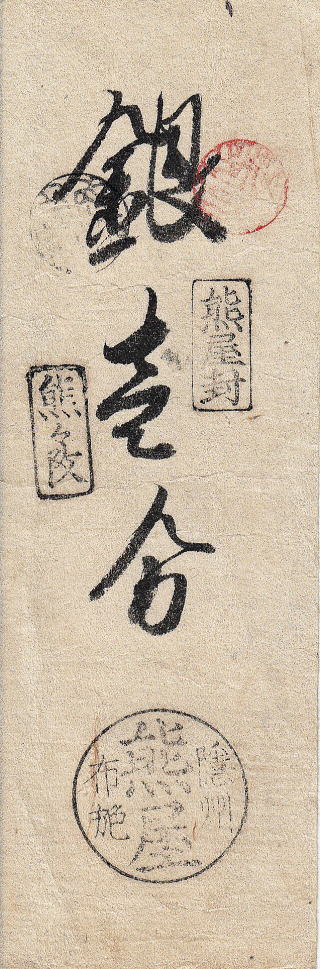 銀壹分
熊屋封
熊々改
隠州
熊屋
布施